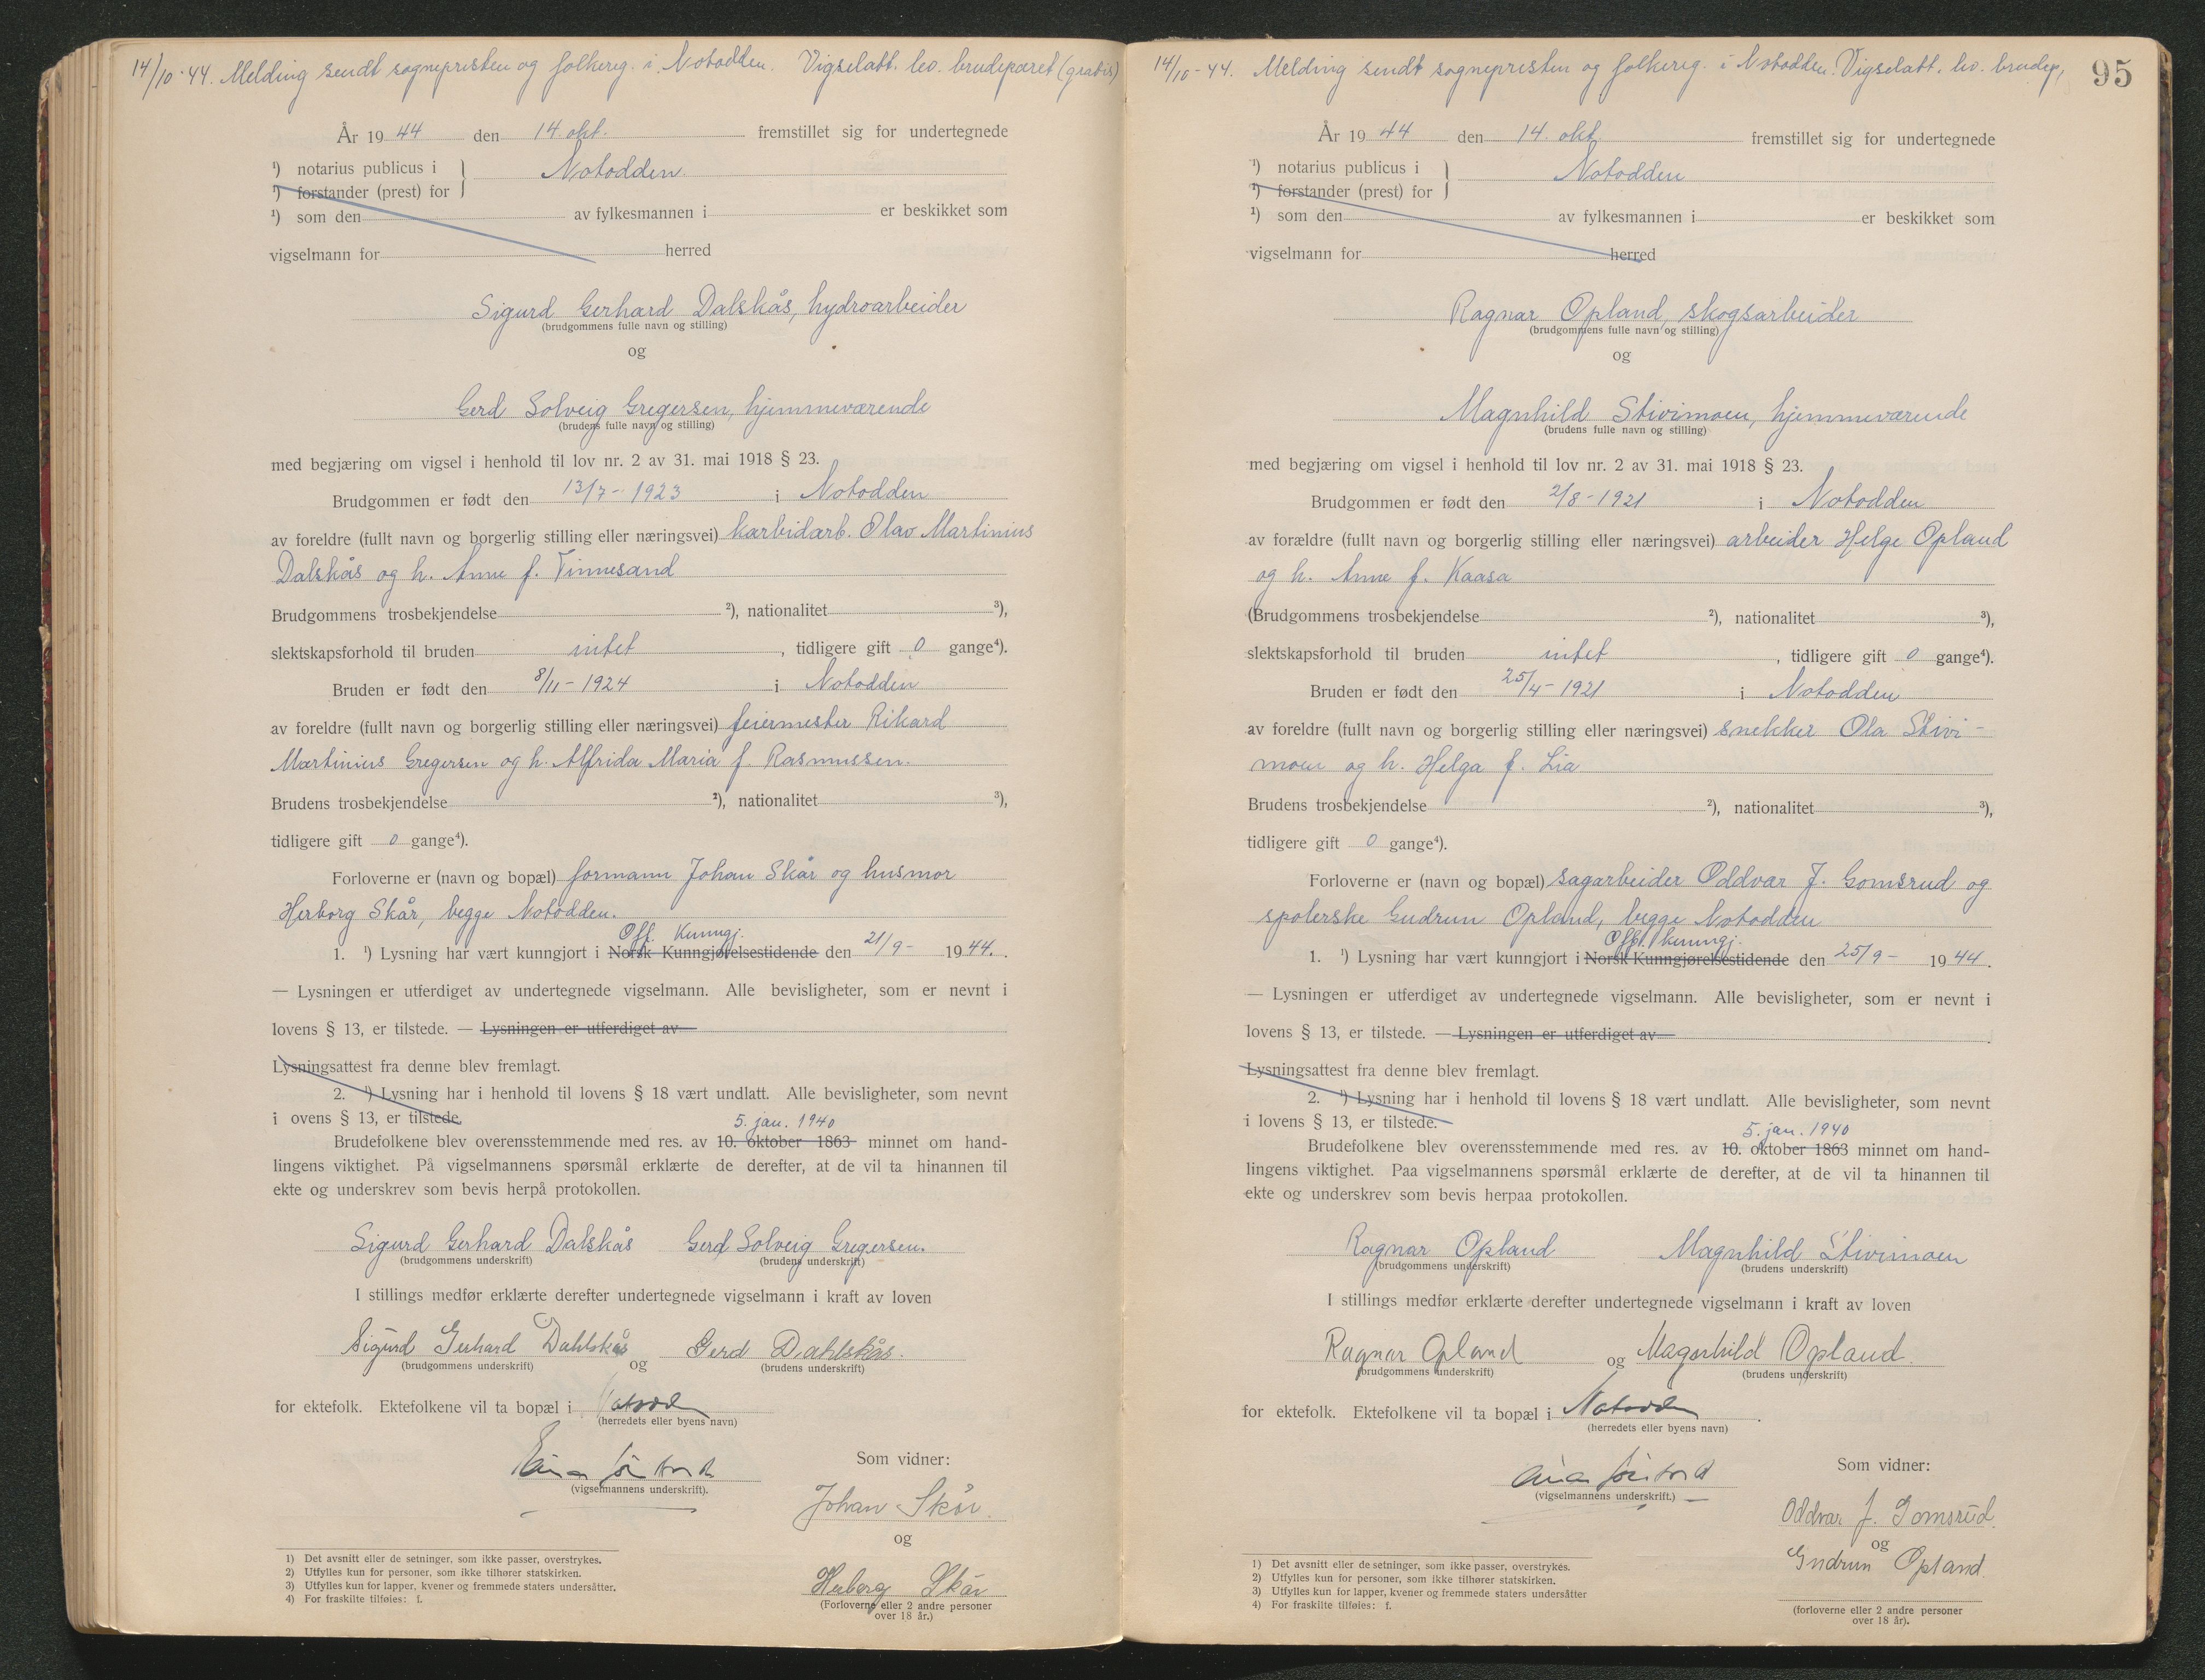 14/10-44. Melding sendt sognepresten og folkereg. i Notodden. Vigselatt. lev. brudeparet (gratis)
År 19 44 den 14. okt. fremstillet sig for undertegnede
¹) notarius publicus i } Notodden.
¹) forstander (prest) for
¹) som den av fylkesmannen i er beskikket som
vigselmann for herred
Sigurd Gerhard Dalskås, hydroarbeider
(brudgommens fulle navn og stilling)
og
Gerd Solveig Gregersen, hjemmeværende
(brudens fulle navn og stilling)
med begjæring om vigsel i henhold til lov nr. 2 av 31. mai 1918 § 23.
Brudgommen er født den 13/7- 1923 i Notodden
av foreldre (fullt navn og borgerlig stilling eller næringsvei) karbidarb. Olav Martinius
Dalskås og h. Anne f. Tinnesand
Brudgommens trosbekjendelse ²), nationalitet ³),
slektskapsforhold til bruden intet, tidligere gift 0 gange⁴).
Bruden er født den 8/11- 1924 i Notodden
av foreldre (fullt navn og borgerlig stilling eller næringsvei) feiermester Rikard
Martinius Gregersen og h. Alfrida Maria f. Rasmussen.
Brudens trosbekjendelse ²), nationalitet ³),
tidligere gift 0 gange⁴).
Forloverne er (navn og bopæl) formann Johan Skår og husmor
Herborg Skår, begge Notodden.
Off. Kunngj.
1. ¹) Lysning har vært kunngjort i Norsk Kunngjørelsestidende den 21/9- 1944.
— Lysningen er utferdiget av undertegnede vigselmann. Alle bevisligheter, som er nevnt i
lovens § 13, er tilstede. — Lysningen er utferdiget av
Lysningsattest fra denne blev fremlagt.
2. ¹) Lysning har i henhold til lovens § 18 vært undlatt. Alle bevisligheter, som nevnt
i ovens § 13, er tilstede.
5. jan. 1940
Brudefolkene blev overensstemmende med res. av 10. oktober 1863 minnet om hand-
lingens viktighet. På vigselmannens spørsmål erklærte de derefter, at de vil ta hinannen til
ekte og underskrev som bevis herpå protokollen.
Sigurd Gerhard Dalskås Gerd Solveig Gregersen.
(brudgommens underskrift) (brudens underskrift)
I stillings medfør erklærte derefter undertegnede vigselmann i kraft av loven
Sigurd Gerhard Dahlskås og Gerd Dahlskås.
(brudgommens underskrift) (brudens underskrift)
for ektefolk. Ektefolkene vil ta bopæl i Notodden
(herredets eller byens navn)
(vigselmannens underskrift).
Som vidner:
Johan Skår.
og
Herborg Skår
(Forloverne eller 2 andre personer
over 18 år.)
1) Det avsnitt eller de setninger, som ikke passer, overstrykes.
2) Utfylles kun for personer, som ikke tilhører statskirken.
3) Utfylles kun for lapper, kvener og fremmede staters undersåtter.
4) For fraskilte tilføies: f.
14/10-44. Melding sendt sognepresten og folkereg. i Notodden. Vigselatt. lev. brudep.
95
År 19 44 den 14. okt fremstillet sig for undertegnede
¹) notarius publicus i } Notodden
¹) forstander (prest) for
¹) som den av fylkesmannen i er beskikket som
vigselmann for herred
Ragnar Opland, skogsarbeider
(brudgommens fulle navn og stilling)
og
Magnhild Stivimoen, hjemmeværende
(brudens fulle navn og stilling)
med begjæring om vigsel i henhold til lov nr. 2 av 31. mai 1918 § 23.
Brudgommen er født den 2/8-1921 i Notodden
av forældre (fullt navn og borgerlig stilling eller næringsvei) arbeider Helge Opland
og h. Anne f. Kaasa
(Brudgommens trosbekjendelse ²), nationalitet ³),
slektskapsforhold til bruden intet, tidligere gift 0 gange⁴).
Bruden er født den 25/4-1921 i Notodden
av foreldre (fullt navn og borgerlig stilling eller næringsvei) snekker Ola Stivi-
moen og h. Helga f. Lia
Brudens trosbekjendelse ²), nationalitet ³),
tidligere gift 0 gange⁴).
Forloverne er (navn og bopæl) sagarbeider Oddvar J. Gomsrud og
spolerske Gudrun Opland, begge Notodden
Offl. kunngj.
1. ¹) Lysning har vært kunngjort i Norsk Kunngjørelsestidende den 25/9- 1944.
— Lysningen er utferdiget av undertegnede vigselmann. Alle bevisligheter, som er nevnt i
lovens § 13, er tilstede. — Lysningen er utferdiget av
Lysningsattest fra denne blev fremlagt.
2. ¹) Lysning har i henhold til lovens § 18 vært undlatt. Alle bevisligheter, som nevnt
i lovens § 13, er tilstede.
5. jan. 1940
Brudefolkene blev overensstemmende med res. av 10. oktober 1863 minnet om hand-
lingens viktighet. Paa vigselmannens spørsmål erklærte de derefter, at de vil ta hinannen til
ekte og underskrev som bevis herpaa protokollen.
Ragnar Opland Magnhild Stivimoen
(brudgommens underskrift) (brudens underskrift)
I stillings medfør erklærte derefter undertegnede vigselmann i kraft av loven
Ragnar Opland og Magnhild Opland.
(brudgommens underskrift) (brudens underskrift)
for ektefolk. Ektefolkene vil ta bopæl i Notodden.
(herredets eller byens navn)
(vigselmannens underskrift.)
Som vidner:
Oddvar J. Gomsrud.
og
Gudrun Opland.
(forloverne eller 2 andre personer
over 18 år).
1) Det avsnitt eller de setninger, som ikke passer, overstrykes.
2) Utfylles kun for personer, som ikke tilhører statskirken.
3) Utfylles kun for lapper, kvener og fremmede staters undersåtter
4) For fraskilte tilføies: f.